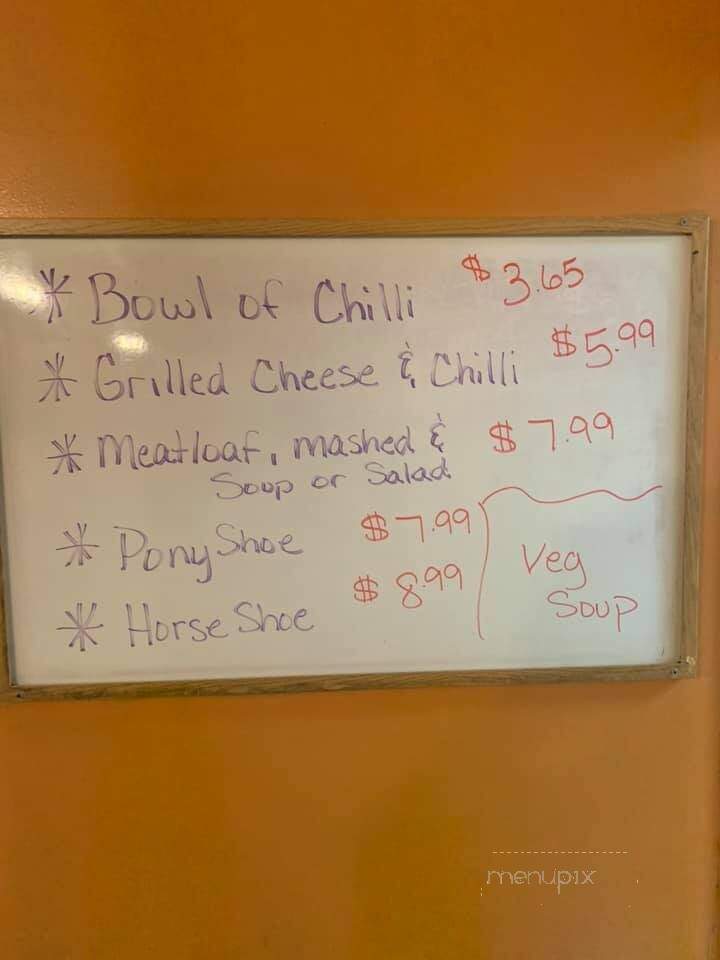 * Bowl of Chilli $3.65
* Grilled Cheese & Chilli $5.99
* Meatloaf, mashed & $7.99
Soup or Salad
* Pony Shoe $7.99
* Horse Shoe $8.99
Veg
Soup
menupix